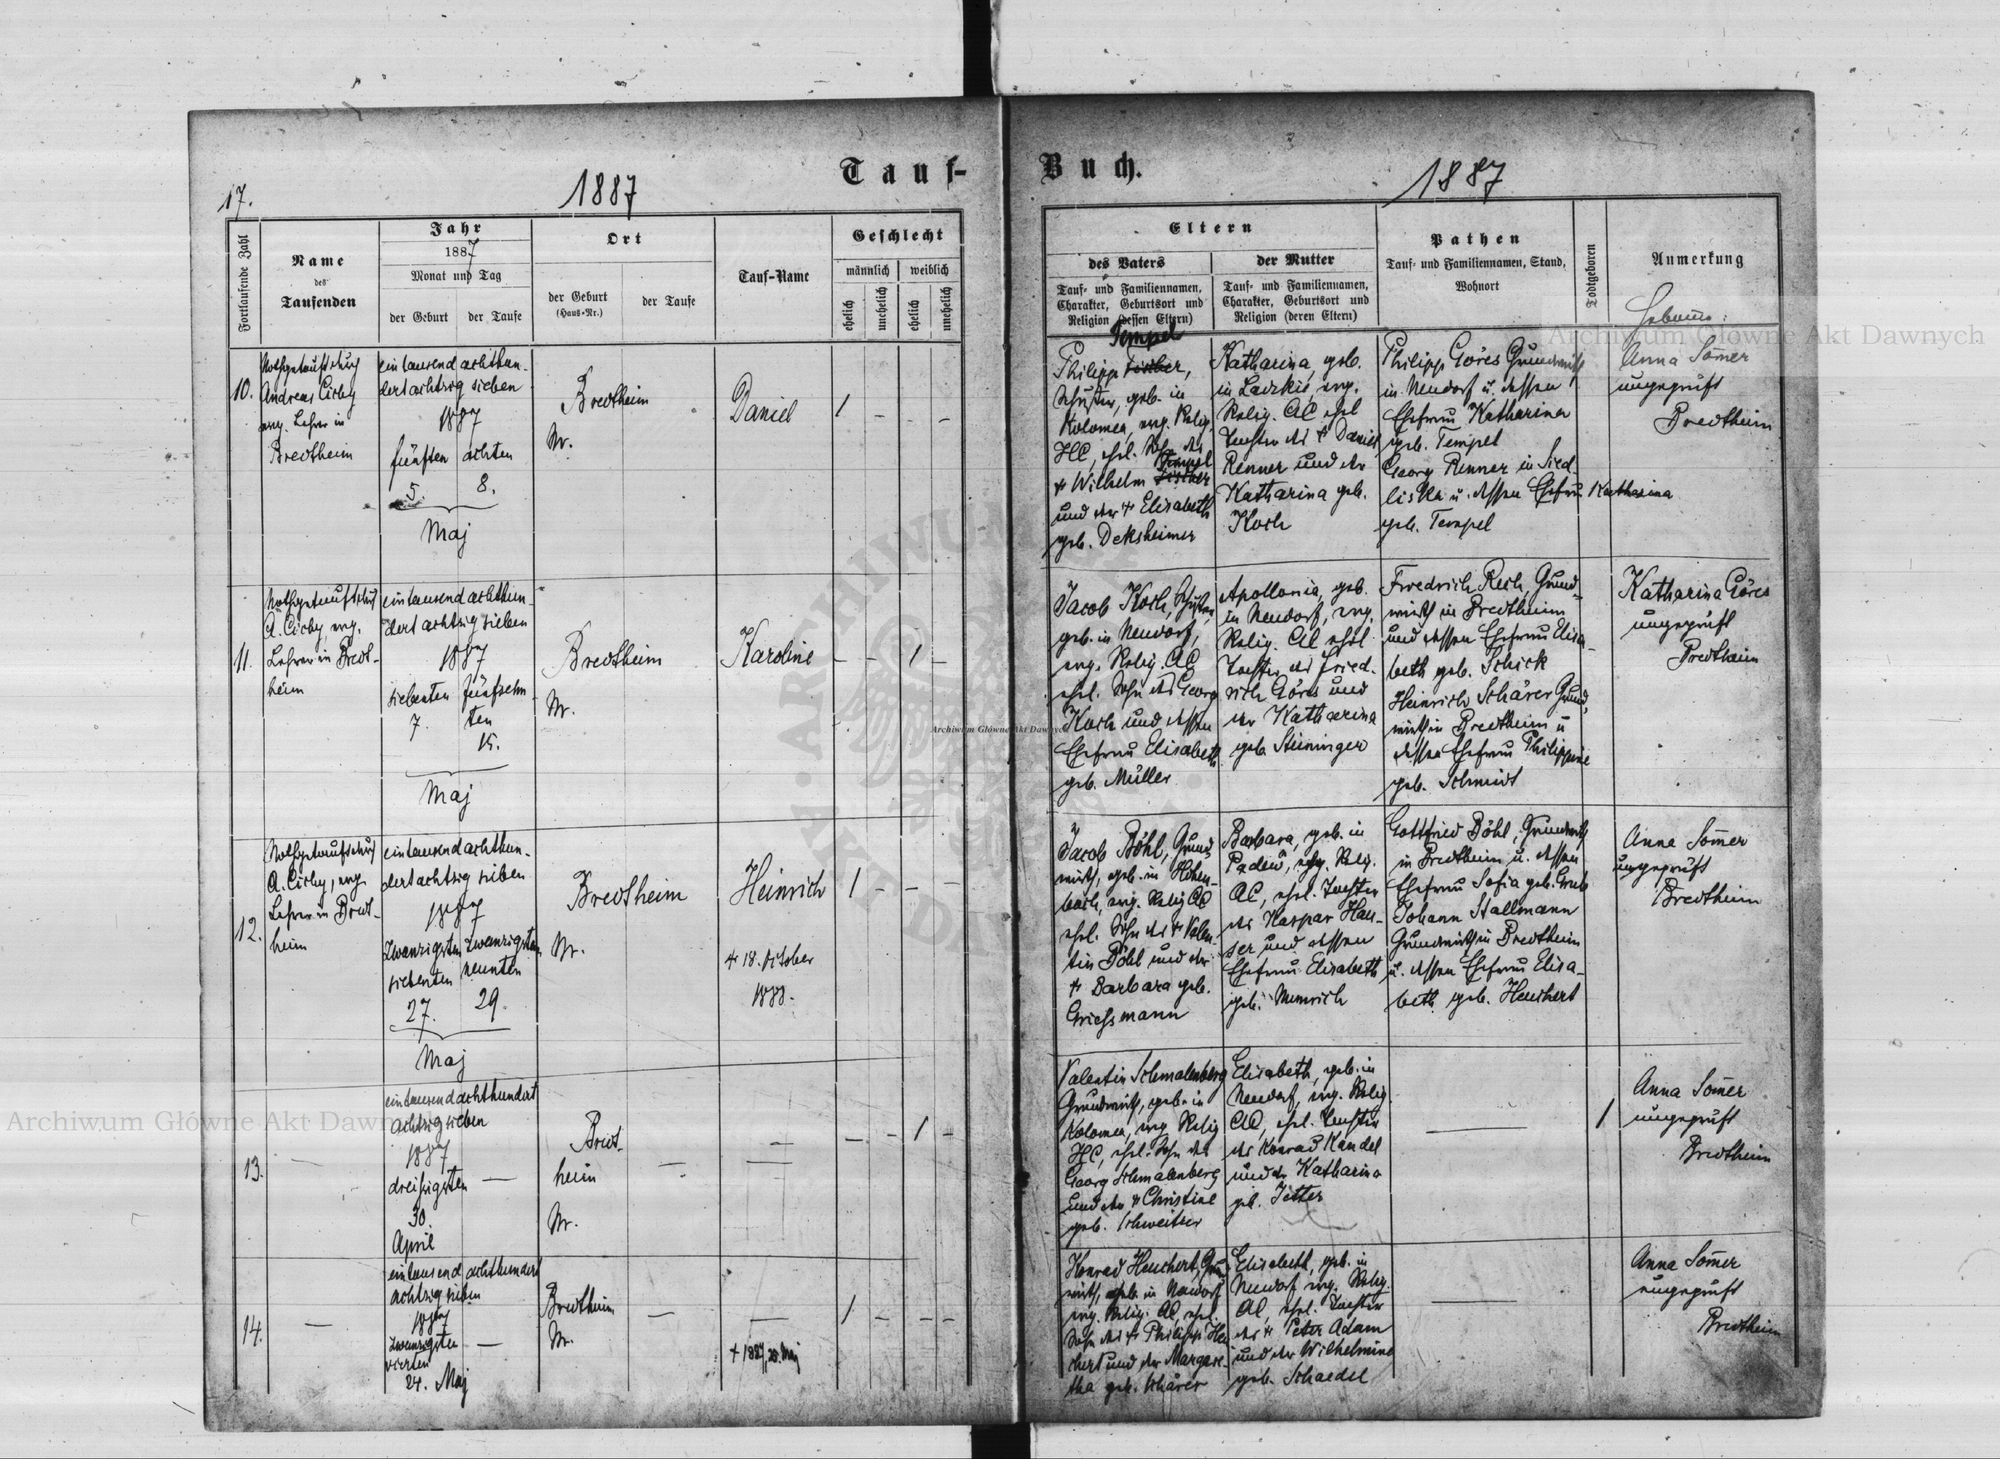 Tauf-
Buch.
17.
1887
1887
Fortlaufende Zahl
Name
des
Taufenden
Jahr
1887
Monat und Tag
der Geburt
der Taufe
Ort
der Geburt
(Haus-Nr.)
der Taufe
Tauf-Name
Geschlecht
männlich
weiblich
ehelich
unehelich
ehelich
unehelich
Eltern
des Vaters
Tauf- und Familiennamen,
Charakter, Geburtsort und
Religion (dessen Eltern)
der Mutter
Tauf- und Familiennamen,
Charakter, Geburtsort und
Religion (deren Eltern)
Pathen
Tauf- und Familiennamen, Stand,
Wohnort
Todtgeboren
Anmerkung
10.
Nothgetauft durch
Andreas Cirby
evg. Lehrer in
Bredtheim
eintausend achthun-
dertachtzig sieben
1887
fünften
achten
5.
8.
Maj
Bredtheim
Nr.
Daniel
1 - - -
Tempel
Philipp Fischer,
Schuster, geb. in
Kolomea, evg. Relig.
HC, ehel. Sohn des
Tempel
+ Wilhelm Fischer
und der + Elisabeth
geb. Deksheimer
Katharina, geb.
in Laczkie, evg.
Relig. AC ehel
Tochter des + Daniel
Renner und der
Katharina geb.
Koch
Philipp Göres Grundwirth
in Neudorf u. dessen
Ehefrau Katharina
geb. Tempel
Georg Renner in Sied-
liska u. dessen Ehefrau Katharina
geb. Tempel
Hebamme:
Anna Som̄er
ungeprüft
Bredtheim
11.
Nothgetauft durch
A. Cirby, evg.
Lehrer in Bredt-
heim
eintausend achthun-
dert achtzig sieben
1887
siebenten
fünfzehn-
ten
7.
15.
Maj
Bredtheim
Nr.
Karoline
- - 1 -
Jacob Koch, Schuster,
geb. in Neudorf,
evg. Relig. AC,
ehel. Sohn des Georg
Koch und dessen
Ehefrau Elisabeth
geb. Müller
Apollonia, geb.
in Neudorf, evg.
Relig. AC ehel
Tochter des Fried-
rich Göres und
der Katharina
geb. Steininger
Friedrich Reih Grund-
wirth in Bredtheim
und dessen Ehefrau Elisa-
beth geb. Schick
Heinrich Schärer Grund-
wirth in Bredtheim u
dessen Ehefrau Philippine
geb. Schmidt
Katharina Göres
ungeprüft
Bredtheim
12.
Nothgetauft durch
A. Cirby, evg
Lehrer in Bredt-
heim
eintausend achthun-
dertachtzig sieben
1887
zwanzigsten
siebenten
zwanzigsten
neunten
27.
29.
Maj
Bredtheim
Nr.
Heinrich
+ 18. October
1888.
1 - - -
Jacob Böhl, Grund-
wirth, geb. in Hohen-
bach, evg. Relig AC
ehel. Sohn des + Valen-
tin Böhl und der
+ Barbara geb.
Griessmann
Barbara, geb. in
Padew, evg. Relig.
AC, ehel. Tochter
des Kaspar Hau-
ser und dessen
Ehefrau Elisabeth
geb.
Gottfried Böhl, Grundwirth
in Bredtheim u. dessen
Ehefrau Sofia geb. Grub
Johann Stallmann
Grundwirth in Bredtheim
u. dessen Ehefrau Elisa-
beth geb. Heuchert
Anna Som̄er
ungeprüft
Bredtheim
13.
eintausend achthundert
achtzig sieben
1887
dreißigsten
30.
April
Bredt-
heim
Nr.
- - 1 -
Valentin Schmalenberg
Grundwirth, geb. in
Kolomea, evg Relig
HC, ehel. Sohn des
Georg Schmalenberg
und der + Christine
geb. Schweitzer
Elisabeth, geb. in
Neudorf, evg. Relig
AC, ehel. Tochter
des Konrad Kandel
und der Katharina
geb. Jetter
1
Anna Som̄er
ungeprüft
Bredtheim
14.
eintausend achthundert
achtzig sieben
1887
zwanzigsten
vierten
24. Maj
Bredtheim
Nr.
+ 1887, 28. Maj
1 - - -
Konrad Heuchert, Grund-
wirth, geb. in Neudorf
evg. Relig. AC, ehel.
Sohn des + Philipp Heu-
chert und der Margare-
tha geb. Schärer
Elisabeth, geb. in
Neudorf evg. Relig.
AC, ehel. Tochter
des + Peter Adam
und der Wilhelmine
geb. Schaedel
Anna Som̄er
ungeprüft
Bredtheim
Archiwum Główne Akt Dawnych
Archiwum Główne Akt Dawnych
Archiwum Główne Akt Dawnych